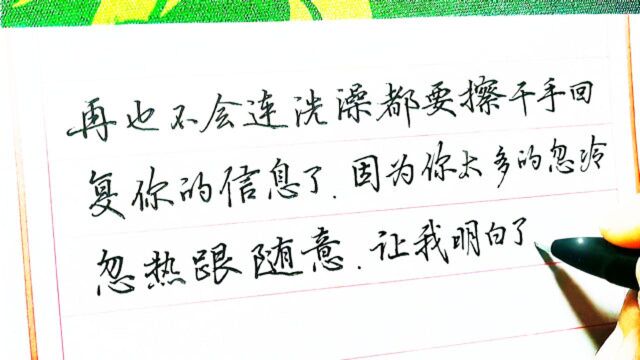 再也不会连洗澡都要擦干手回
复你的信息了.因为你太多的忽冷
忽热跟随意.让我明白了